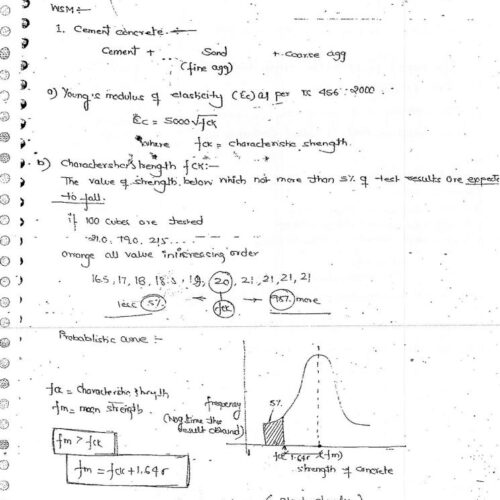 WSM :-
1. Cement concrete :-
Cement + Sand + coarse agg
(fine agg)
a) Young's modulus of elasticity (Ec) as per IS 456 : 2000
Ec = 5000√fck
where fck = characteristic strength.
b) Characteristic strength fck :-
The value of strength below which not more than 5% of test results are expected
to fall.
if 100 cubes are tested
21.0, 19.0, 21.5 ....
arrange all value in increasing order
16.5, 17, 18, 18.5, 19, 20, 21, 21, 21, 21
less 5% ← fck → 95% more
Probablistic curve :-
fck = characteristic strength
fm = mean strength.
fm > fck
fm = fck + 1.64σ
frequency
(No of time the
result obtained)
5%
fck 1.64σ (fm)
strength of concrete